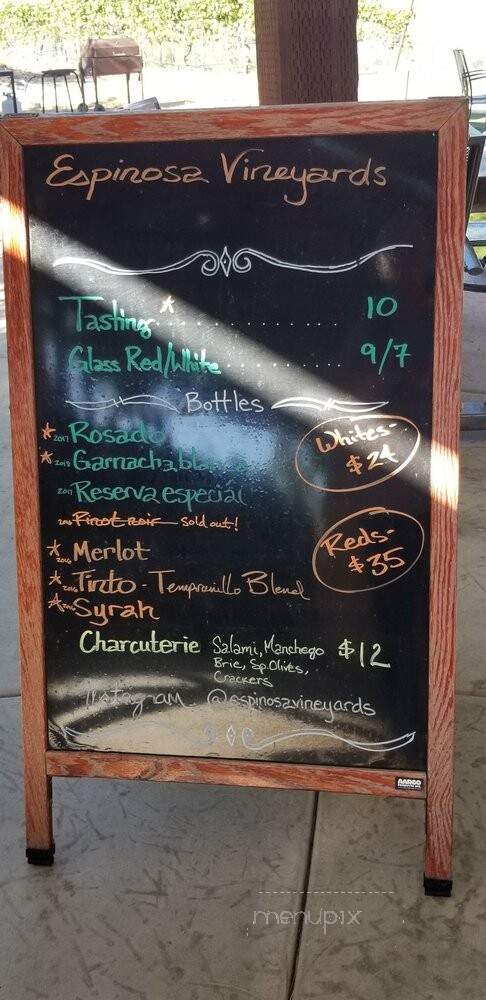 Espinosa Vineyards
Tasting* .................... 10
Glass Red/White ............. 9/7
Bottles
* 2017 Rosado
Whites-
$24
* 2018 Garnacha blanca
2017 Reserva especial
Pinot noir sold out!
Reds-
$35
* 2016 Merlot
* 2016 Tinto - Tempranillo Blend
* 2016 Syrah
Charcuterie Salami, Manchego $12
Brie, Sp. Olives,
Crackers
Instagram @espinosavineyards
AARCO
menupix